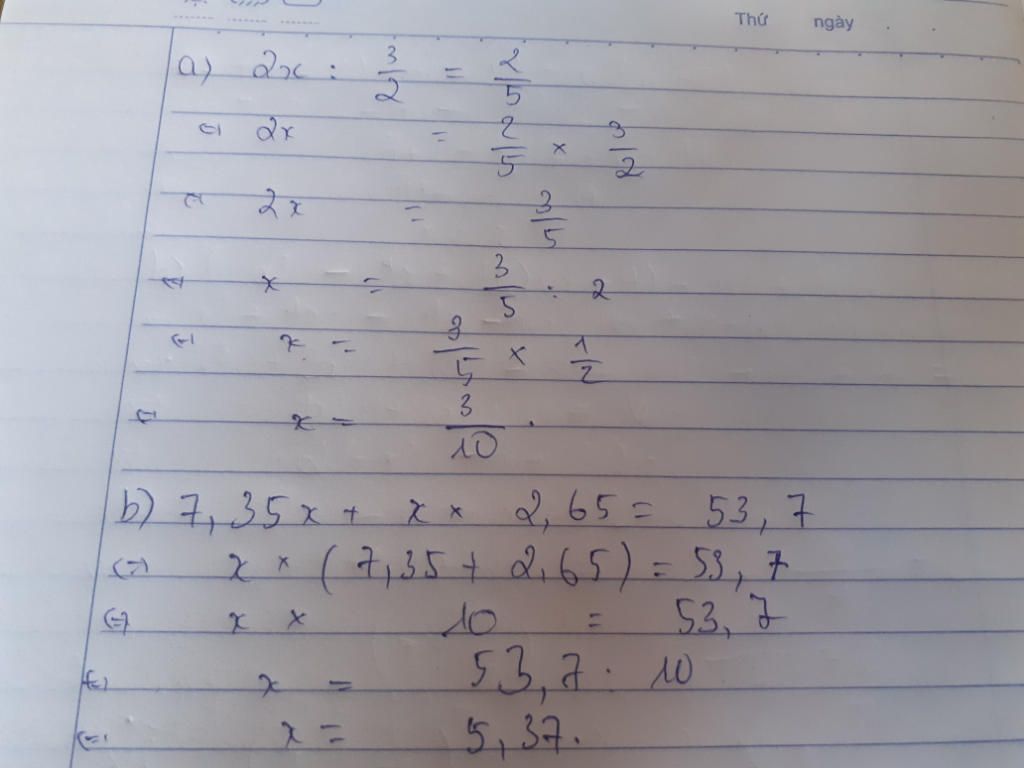 Thứ ngày
a) 2x : 3/2 = 2/5
⇔ 2x = 2/5 × 3/2
⇔ 2x = 3/5
⇔ x = 3/5 : 2
⇔ x = 3/5 × 1/2
⇔ x = 3/10 .
b) 7,35x + x × 2,65 = 53,7
⇔ x × (7,35 + 2,65) = 53,7
⇔ x × 10 = 53,7
⇔ x = 53,7 : 10
⇔ x = 5,37.